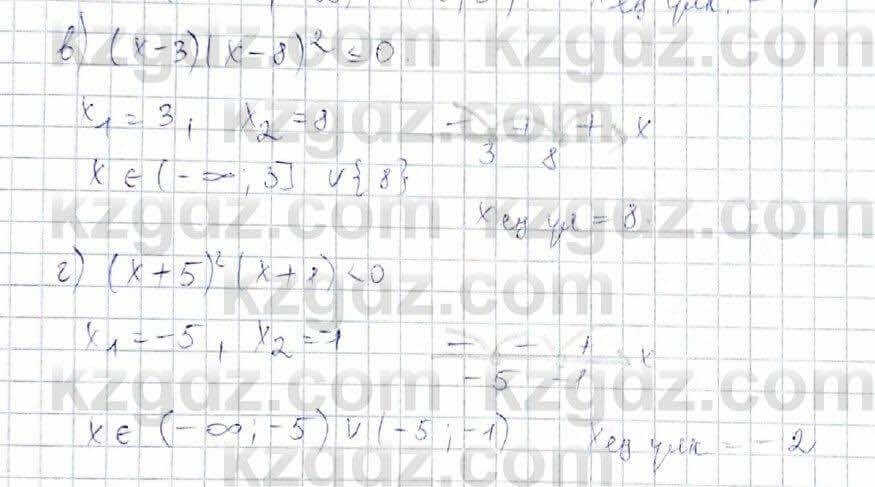 в) (x-3)(x-8)² ≤ 0.
x₁ = 3, x₂ = 8 - 3 + 8 + x
x ∈ (-∞; 3] ∨ {8}
x ең үл = 8.
г) (x+5)² (x+1) < 0
x₁ = -5, x₂ = -1 - -5 - -1 + x
x ∈ (-∞; -5) ∨ (-5; -1) x ең үлк = -2
kzgdz.com